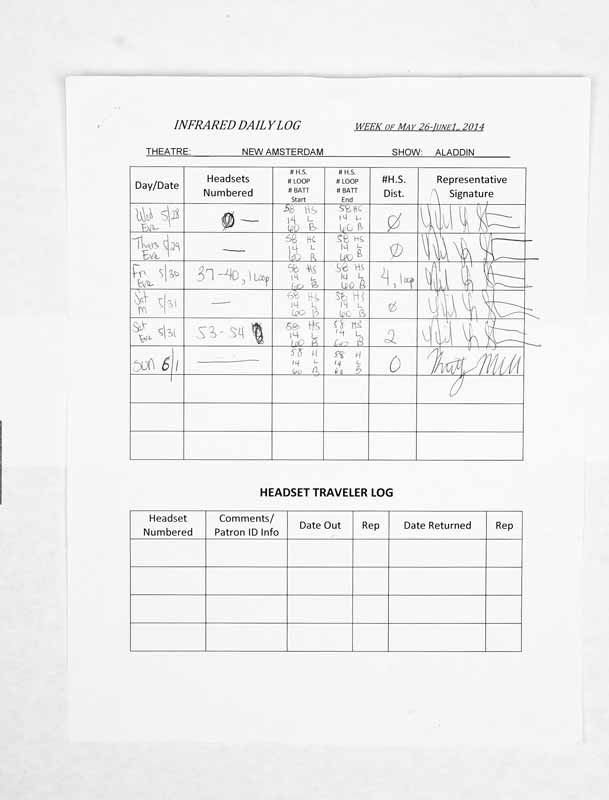 INFRARED DAILY LOG WEEK OF MAY 26-JUNE1,, 2014
THEATRE: NEW AMSTERDAM SHOW: ALADDIN
Day/Date
Headsets
Numbered
# H.S.
# LOOP
# BATT
Start
# H.S.
# LOOP
# BATT
End
#H.S.
Dist.
Representative
Signature
Wed 5/28
Eve
Ø —
58 HS
14 L
60 B
58 HS
14 L
60 B
Ø
Thurs 5/29
Eve
—
58 HS
14 L
60 B
58 HS
14 L
60 B
Ø
Fri 5/30
Eve
37-40, 1 Loop
58 HS
14 L
60 B
58 HS
14 L
60 B
4, 1 Loop
Sat 5/31
m
—
58 HS
14 L
60 B
58 HS
14 L
60 B
Ø
Sat 5/31
Eve
53-54
58 HS
14 L
60 B
58 HS
14 L
60 B
2
Sun 6/1
—
58 H
14 L
60 B
58 H
14 L
60 B
0
HEADSET TRAVELER LOG
Headset
Numbered
Comments/
Patron ID Info
Date Out
Rep
Date Returned
Rep